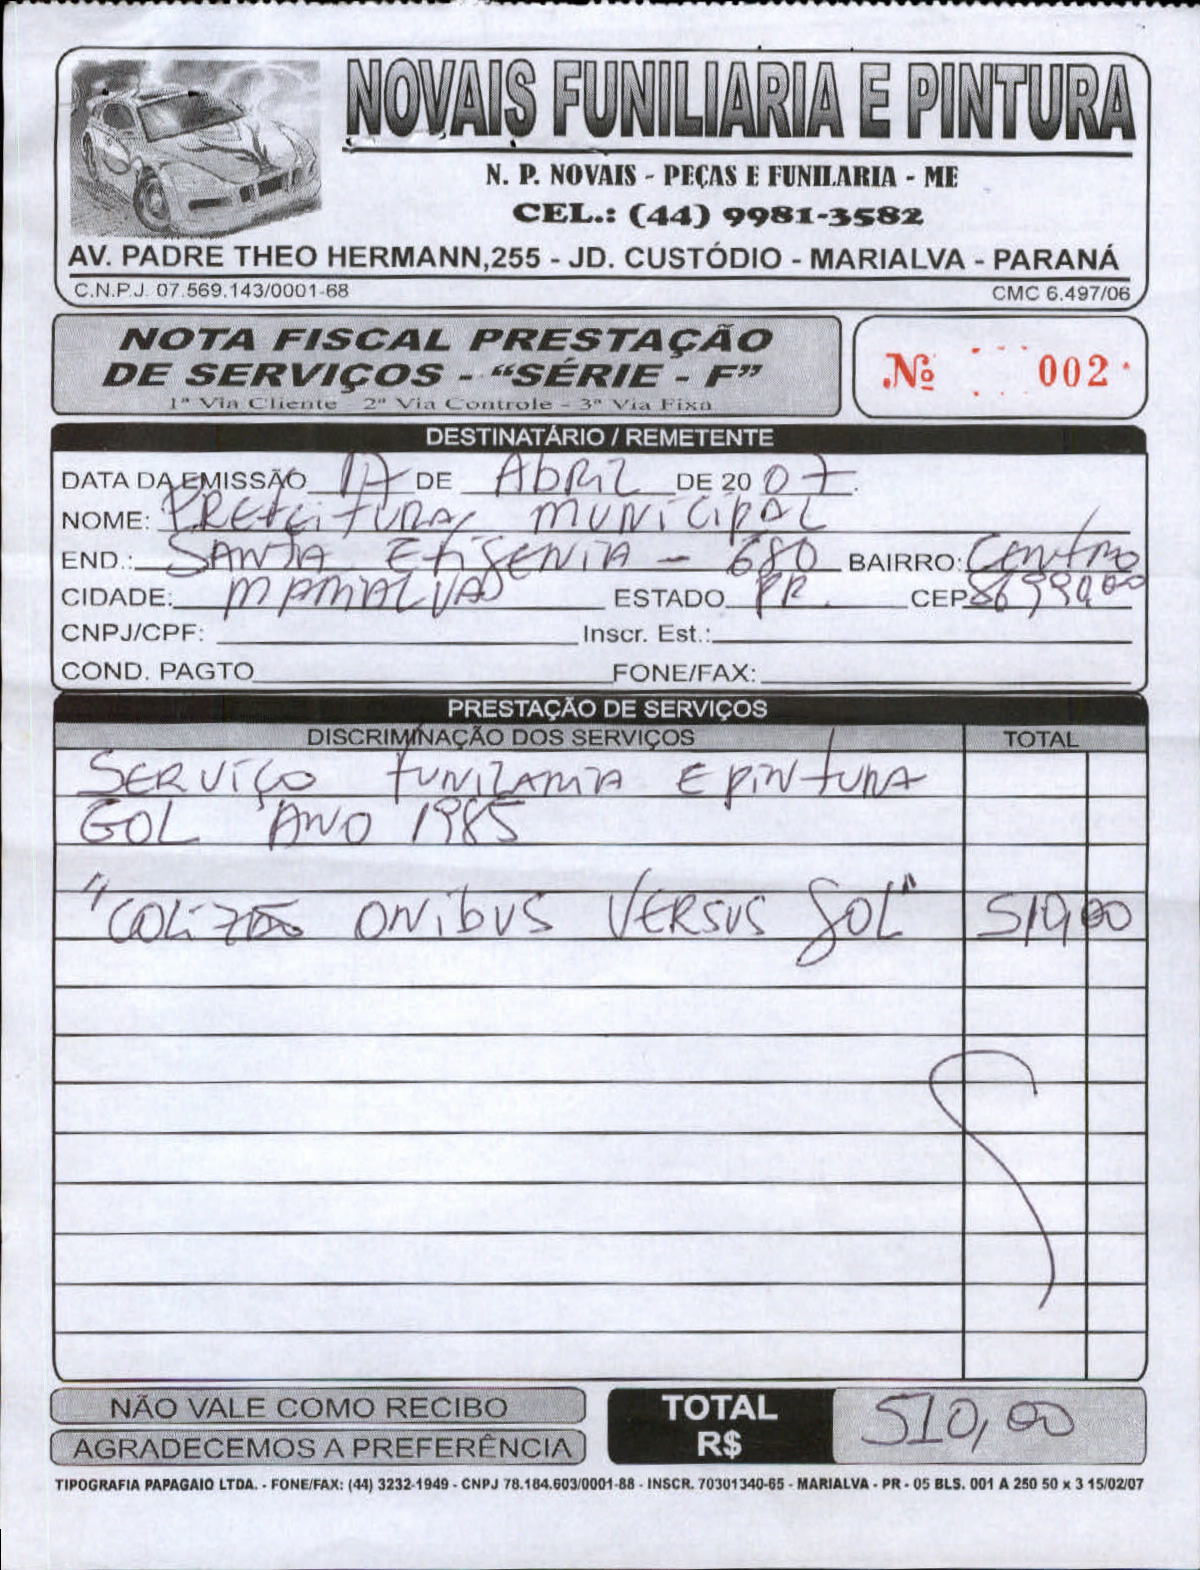 NOVAIS FUNILIARIA E PINTURA
N. P. NOVAIS - PEÇAS E FUNILARIA - ME
CEL.: (44) 9981-3582
AV. PADRE THEO HERMANN,255 - JD. CUSTÓDIO - MARIALVA - PARANÁ
C.N.P.J. 07.569.143/0001-68 CMC 6.497/06
NOTA FISCAL PRESTAÇÃO
DE SERVIÇOS - "SÉRIE - F"
1ª Via Cliente - 2ª Via Controle - 3ª Via Fixa
Nº 002
DESTINATÁRIO / REMETENTE
DATA DA EMISSÃO 17 DE Abril DE 2007.
NOME: PREFEITURA MUNICIPAL
END.: SANTA EFIGENIA - 680 BAIRRO: Centro
CIDADE: MARIALVA ESTADO PR. CEP 86990,00
CNPJ/CPF: Inscr. Est.:
COND. PAGTO FONE/FAX:
PRESTAÇÃO DE SERVIÇOS
DISCRIMINAÇÃO DOS SERVIÇOS TOTAL
SERVIÇO FUNILARIA E PINTURA
GOL ANO 1985
"COLIZÃO ONIBUS VERSUS GOL" 510,00
NÃO VALE COMO RECIBO
AGRADECEMOS A PREFERÊNCIA
TOTAL R$ 510,00
TIPOGRAFIA PAPAGAIO LTDA. - FONE/FAX: (44) 3232-1949 - CNPJ 78.184.603/0001-88 - INSCR. 70301340-65 - MARIALVA - PR - 05 BLS. 001 A 250 50 x 3 15/02/07